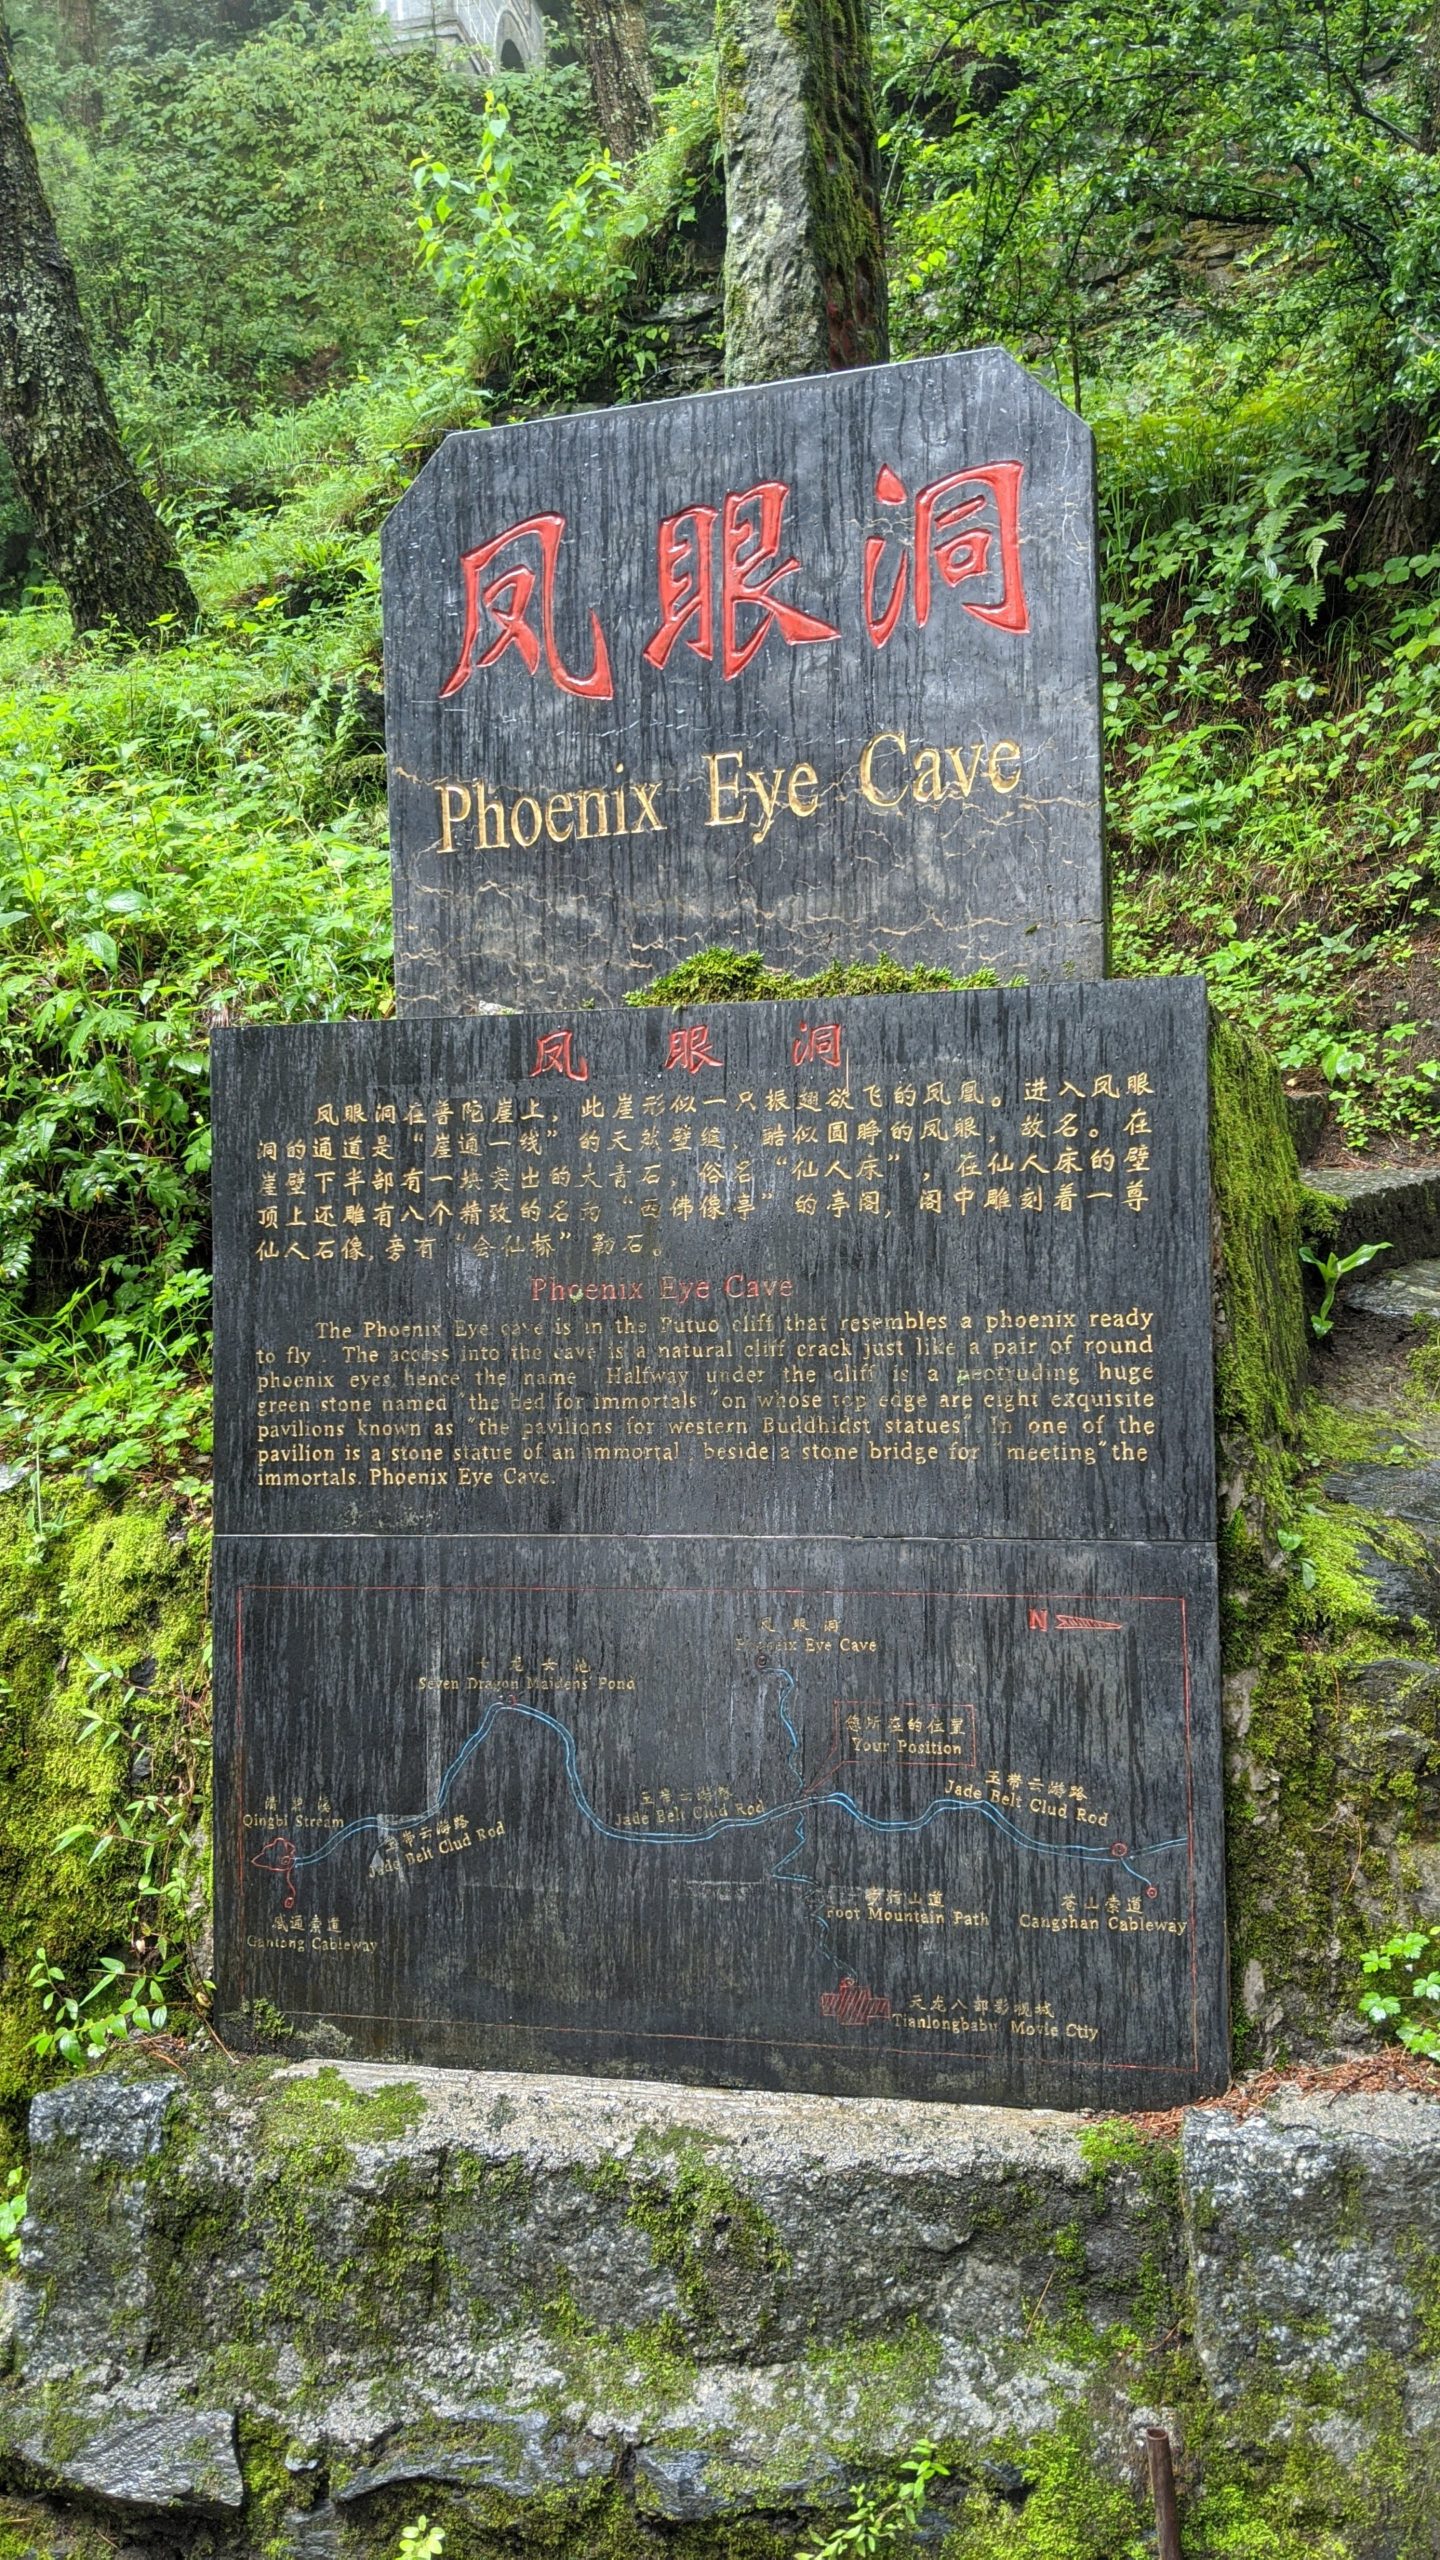 凤眼洞
Phoenix Eye Cave
凤眼洞
凤眼洞在普陀崖上，此崖形似一只振翅欲飞的凤凰。进入凤眼
洞的通道是“崖通一线”的天然壁缝，酷似圆睁的凤眼，故名。在
崖壁下半部有一块突出的大青石，俗名“仙人床”，在仙人床的壁
顶上还雕有八个精致的名为“西佛像亭”的亭阁，阁中雕刻着一尊
仙人石像，旁有“会仙桥”勒石。
Phoenix Eye Cave
The Phoenix Eye cave is in the Putuo cliff that resembles a phoenix ready
to fly. The access into the cave is a natural cliff crack just like a pair of round
phoenix eyes, hence the name. Halfway under the cliff is a protruding huge
green stone named "the bed for immortals "on whose top edge are eight exquisite
pavilions known as "the pavilions for western Buddhidst statues". In one of the
pavilion is a stone statue of an immortal, beside a stone bridge for "meeting"the
immortals. Phoenix Eye Cave.
N
凤眼洞
Phoenix Eye Cave
七龙女池
Seven Dragon Maidens' Pond
您所在的位置
Your Position
玉带云游路
Jade Belt Clud Rod
玉带云游路
Jade Belt Clud Rod
清碧溪
Qingbi Stream
玉带云游路
Jade Belt Clud Rod
步行山道
Foot Mountain Path
苍山索道
Cangshan Cableway
感通索道
Gantong Cableway
天龙八部影视城
Tianlongbabu Movie Ctiy